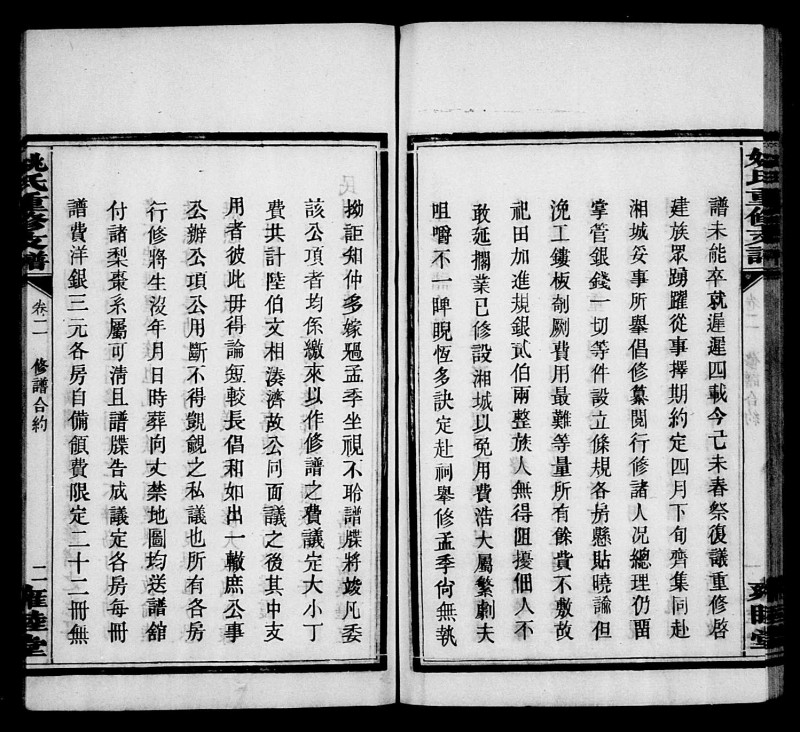 譜未能卒就遲遲四載今己未春祭復議重修啓
建族眾踴躍從事擇期約定四月下旬齊集同赴
湘城妥事所舉倡修纂閱行修諸人况總理仍畱
掌管銀錢一切等件設立條規各房懸貼曉諭但
浼工鏤板剞劂費用最難等量所有餘貲不敷故
祀田加進規銀貳伯兩整族人無得阻擾佃人不
敢延擱業已修設湘城以免用費浩大屬繁劇夫
咀嚼不一睥睨恆多訣定赴祠舉修孟季尙無執
拗詎知仲多嫁過孟季坐視不聆譜牒將竣凡委
該公項者均係繳來以作修譜之費議定大小丁
費共計陸伯文相湊濟故公同面議之後其中支
用者彼此毋得論短較長倡和如出一轍庶公事
公辦公項公用斷不得覬覦之私議也所有各房
行修將生沒年月日時葬向丈禁地圖均送譜舘
付諸梨棗系屬可清且譜牒告成議定各房每冊
譜費洋銀三元各房自備領費限定二十二冊無
姚氏重修支譜
卷二
修譜合約
二
雍睦堂